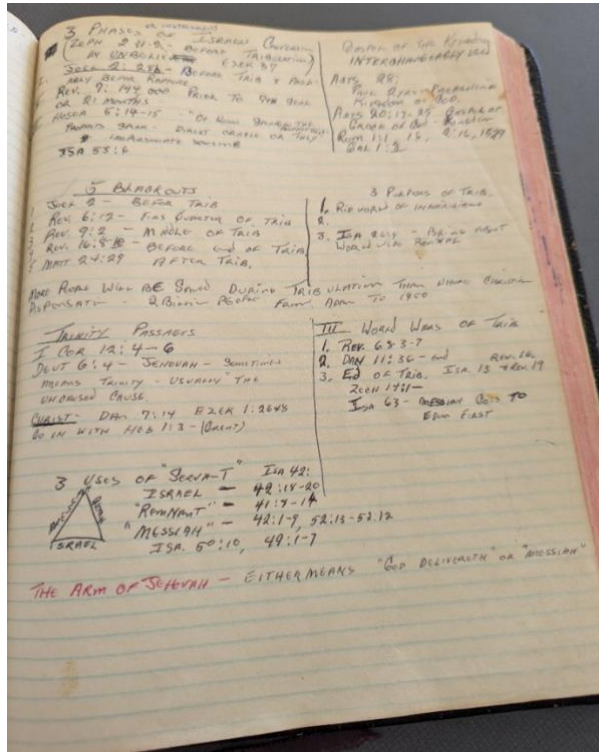 3 PHASES OF ISRAELS CONVERSION
(ZEPH 2:1-2 - BEFORE TRIBULATION)
IN UNBELIEF EZEK 37
JOEL 2: - BEFORE TRIB &
BEFORE RAPTURE
REV. 7: 144 000 PRIOR TO SEAL
OR 21 MONTHS
HOSEA 5:14-15
DIRECT ORACLE OR THEY
ISA 53:
GOSPEL OF THE KINGDOM
INTERCHANGEABLY USED
ACTS 28:
PAUL
KINGDOM OF GOD.
ACTS 20:17-25 GOSPEL OF
GRACE OF GOD
ROM 1:1, 15, 2:16, 15:29
GAL 1:
5 BLACKOUTS
JOEL 2 - BEFOR TRIB
REV. 6:12 - FIRS QUARTER OF TRIB
REV. 9:2 - MIDDLE OF TRIB
REV. 16: - BEFORE END OF TRIB
MATT 24:29 AFTER TRIB.
3 PURPOSES OF TRIB.
1. RID WORLD OF
2.
3. ISA BRING ABOUT
WORLD WIDE REVIVAL
MORE PEOPLE WILL BE SAVED DURING TRIBULATION THAN WHOLE CHRISTIAN
DISPENSATION - 2 BILLION PEOPLE FROM ADAM TO 1900
TRINITY PASSAGES
I COR 12:4-6
DEUT 6:4 - JEHOVAH - SOMETIMES
MEANS TRINITY - USUALLY "THE
UNCAUSED CAUSE
CHRIST - DAN. 7:14 EZEK 1:26
GO IN WITH HEB 1:3 -
III WORLD WARS OF TRIB
1. REV. 6:3-7
2. DAN 11:36 - end REV. 16,
3. END OF TRIB. ISA. 13 & REV. 19
ZECH 14:1 -
ISA 63 - MESSIAH GOES TO
EDOM FIRST
3 USES OF "SERVANT" ISA 42:
ISRAEL - 42:18-20
"REMNANT" - 41:8-14
"MESSIAH" - 42:1-9, 52:13-53:12
ISA. 50:10, 49:1-7
ISRAEL
THE ARM OF JEHOVAH - EITHER MEANS "GOD DELIVERETH" OR "MESSIAH"